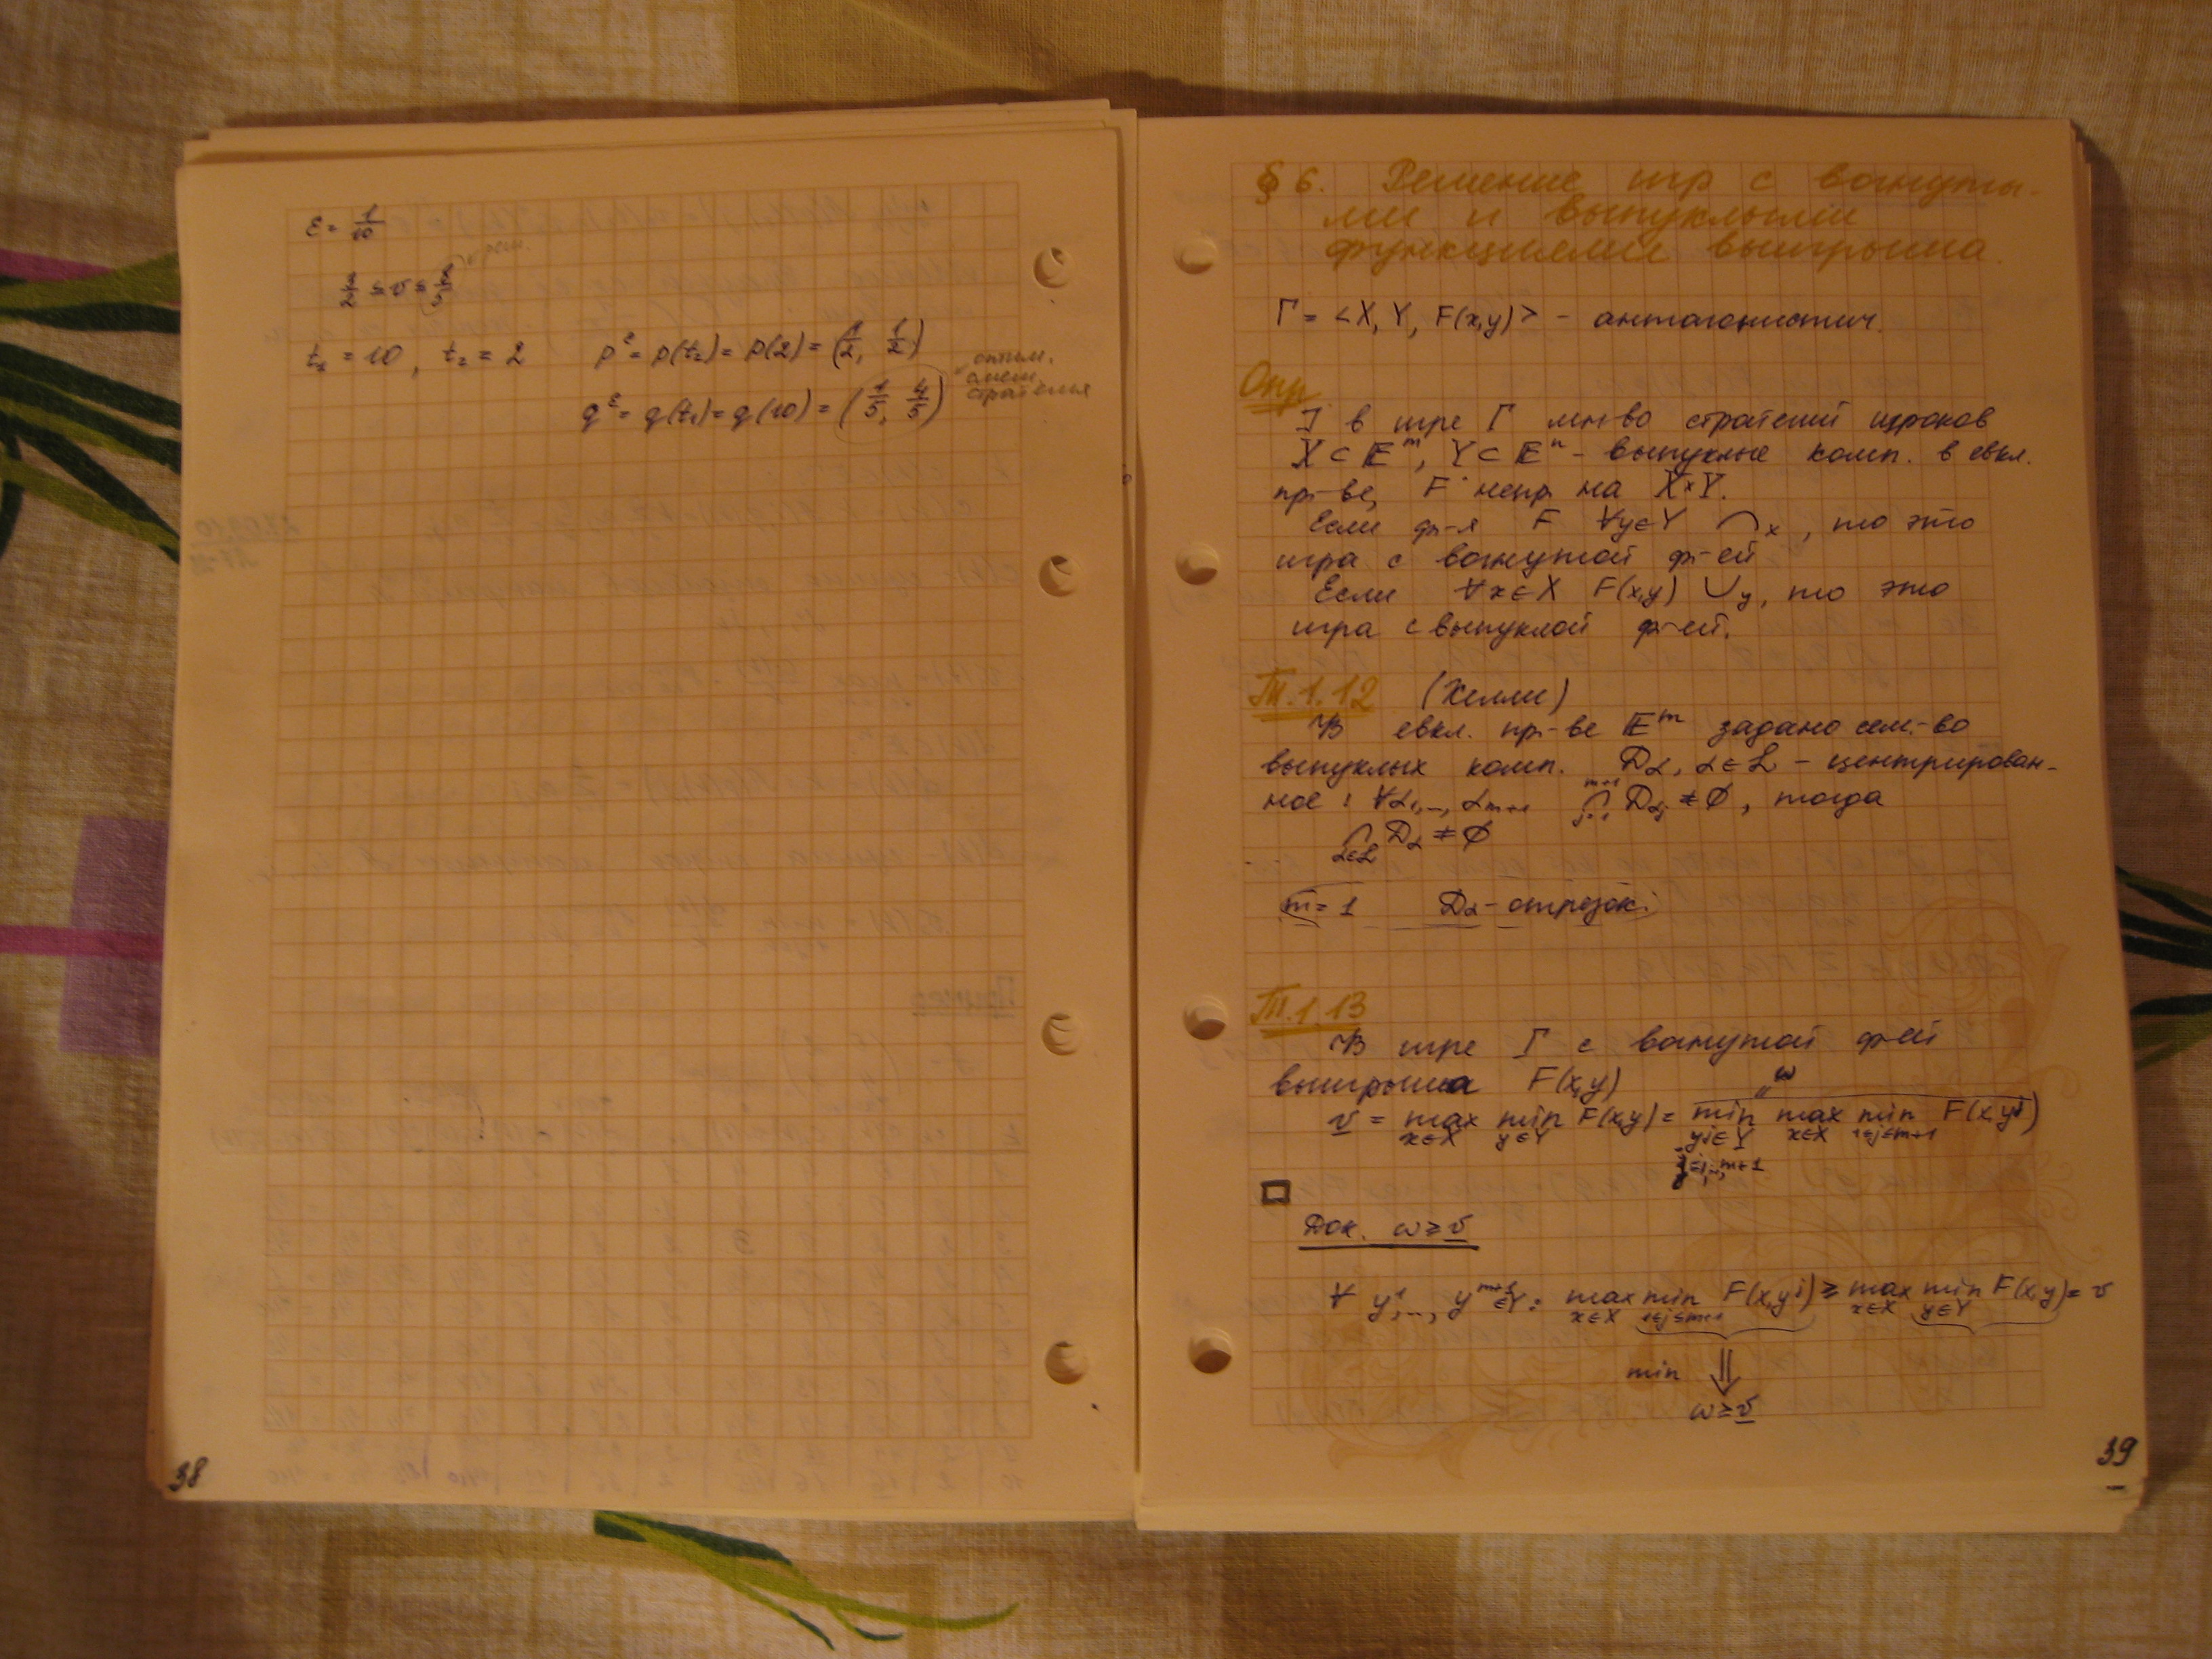 ε = 1/10
≤ v ≤
t₁ = 10, t₂ = 2 p^ε = p(t₂) = p(2) = (1/2, 1/2)
оптим.
смеш.
стратегия
q^ε = q(t₁) = q(10) = (1/5, 4/5)
38
§ 6. Решение игр с вогнуты-
ми и выпуклыми
функциями выигрыша.
Γ = <X, Y, F(x,y)> – антагонистич.
Опр
] в игре Γ мн-во стратегий игроков
X ⊂ E^m, Y ⊂ E^n – выпуклые комп. в евкл.
пр-ве, F непр на X×Y.
Если ф-я F ∀y∈Y ⌒x, то это
игра с вогнутой ф-ей
Если ∀x∈X F(x,y) ∪y, то это
игра с выпуклой ф-ей.
Т.1.12 (Хелли)
В евкл. пр-ве E^m задано сем-во
выпуклых комп. D_α, α∈L – центрирован-
ное: ∀α₁,..., α_{m+1} ⋂_{j=1}^{m+1} D_{αj} ≠ ∅, тогда
⋂_{α∈L} D_α ≠ ∅
m = 1 D_α – отрезок.
Т.1.13
В игре Γ с вогнутой ф-ей
выигрыша F(x,y)
ω
v = max_{x∈X} min_{y∈Y} F(x,y) = min_{y^j∈Y, j=1,...,m+1} max_{x∈X} min_{1≤j≤m+1} F(x,y^j)
□
Док. ω ≥ v
∀ y¹,..., y^{m+1}∈Y: max_{x∈X} min_{1≤j≤m+1} F(x,y^j) ≥ max_{x∈X} min_{y∈Y} F(x,y) = v
min ⇓
ω ≥ v
39